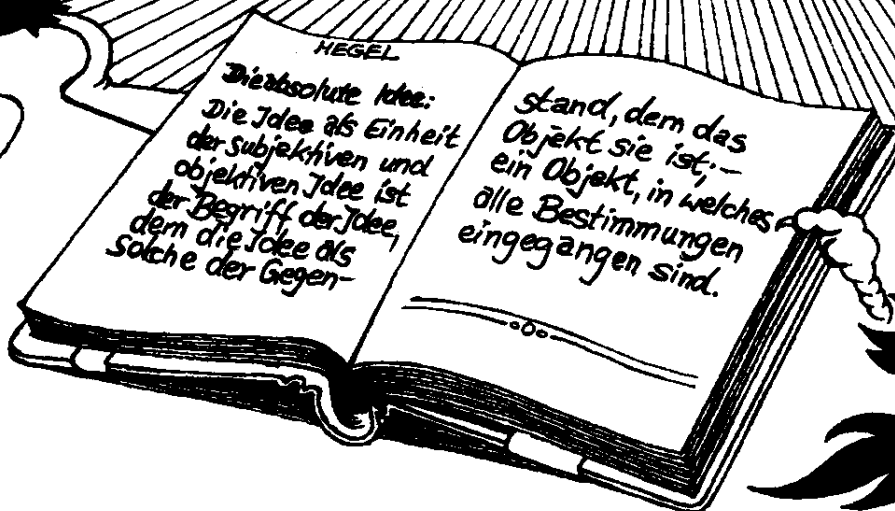 HEGEL
Die absolute Idee:
Die Idee als Einheit
der subjektiven und
objektiven Idee ist
der Begriff der Idee,
dem die Idee als
solche der Gegen-
stand, dem das
Objekt sie ist; –
ein Objekt, in welches
alle Bestimmungen
eingegangen sind.